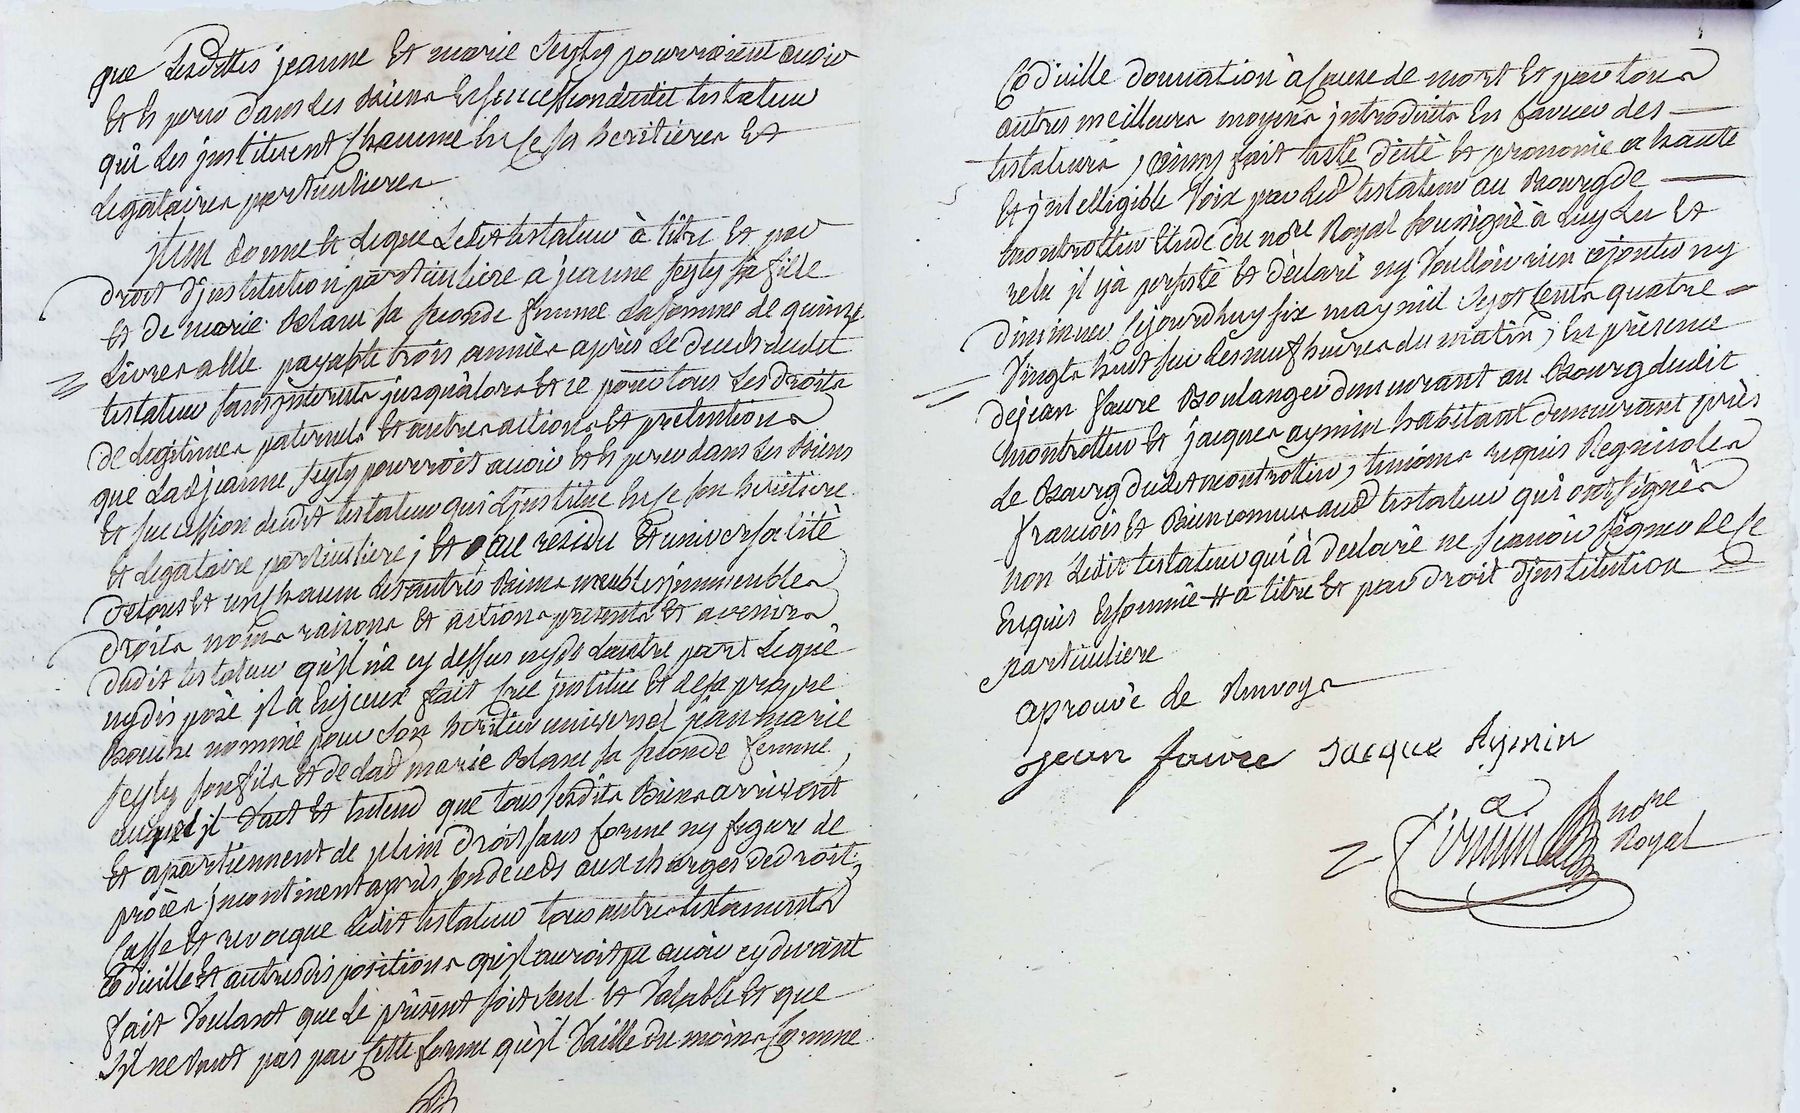 que Lesdittes jeanne Et marie Seyty pourroient avoir
Et Esperer dans les biens Et succession dudit testateur
qui les jnstituent Chacune En ce ses heritieres Et
Legataires particulieres
jtem donne Et Legue Ledit testateur à titre Et par
droit d'jnstitution particuliere a jeanne Seyty sa fille
Et de marie blanc sa seconde femme La somme de quinze
Livres a Elle payable trois années après Le decès dudit
testateur sans jnterests jusqu'alors Et ce pour tous Les droits
de Legitimes paternels Et autres actions Et pretentions
que Lad jeanne Seyty pourroit avoir Et Esperer dans Les biens
Et succession dudit testateur qui L'jnstitue En ce son heritiere
Et Legataire particuliere ; Et au residu Et universalité
de tous Et un chacun Les autres biens meubles jmmeubles
droits noms raisons Et actions presents Et avenirs
dudit testateur qu'jl n'a cy dessus ny de L'autre part Legué
ny disposé jl a En jceux fait Créé jnstitué Et de sa propre
bouche nommé pour son heritier universel jean marie
Seyty son fils Et de Lad marie blanc sa seconde femme,
auquel jl Veut Et Entend que tous sesdits biens arrivent
Et apartiennent de plein droit sans forme ny figure de
procès jncontinent après son decès aux charges de droit,
Casse Et revocque Ledit testateur tous autres testaments
Codicille Et autres dispositions qu'jl auroit pu avoir cy devant
fait Voulant que Le présent soit seul Et Valable Et que
S'jl ne Vaut pas par Cette forme qu'jl Vaille du moins Comme
Codicille donnation à Cause de mort Et par tous
autres meilleurs moyens jntroduits En faveur des
testateurs, ainsy fait testé dicté Et prononcé a haute
Et jntelligible Voix par Led testateur au bourg de
montrottier Etude du no.re Royal soussigné à Luy Lu Et
relu jl y a persisté Et declaré ny Voulloir rien ajouter ny
diminuer Cejourd'huy six may mil sept Cents quatre
Vingts huit sur les neuf heures du matin, En présence
de jean faure boulanger demeurant au bourg dudit
montrottier Et jacques aymin habitant demeurant près
Le bourg dudit montrottier, temoins requis Regnicoles
francois Et bien connus aud testateur qui ont signés
non Ledit testateur qui à declaré ne sçavoir signer de Ce
Enquis Et sommé # a titre Et par droit d'jnstitution
particuliere
aprouvé Le Renvoys
jean faure Jacque Aymin
no.re
Royal